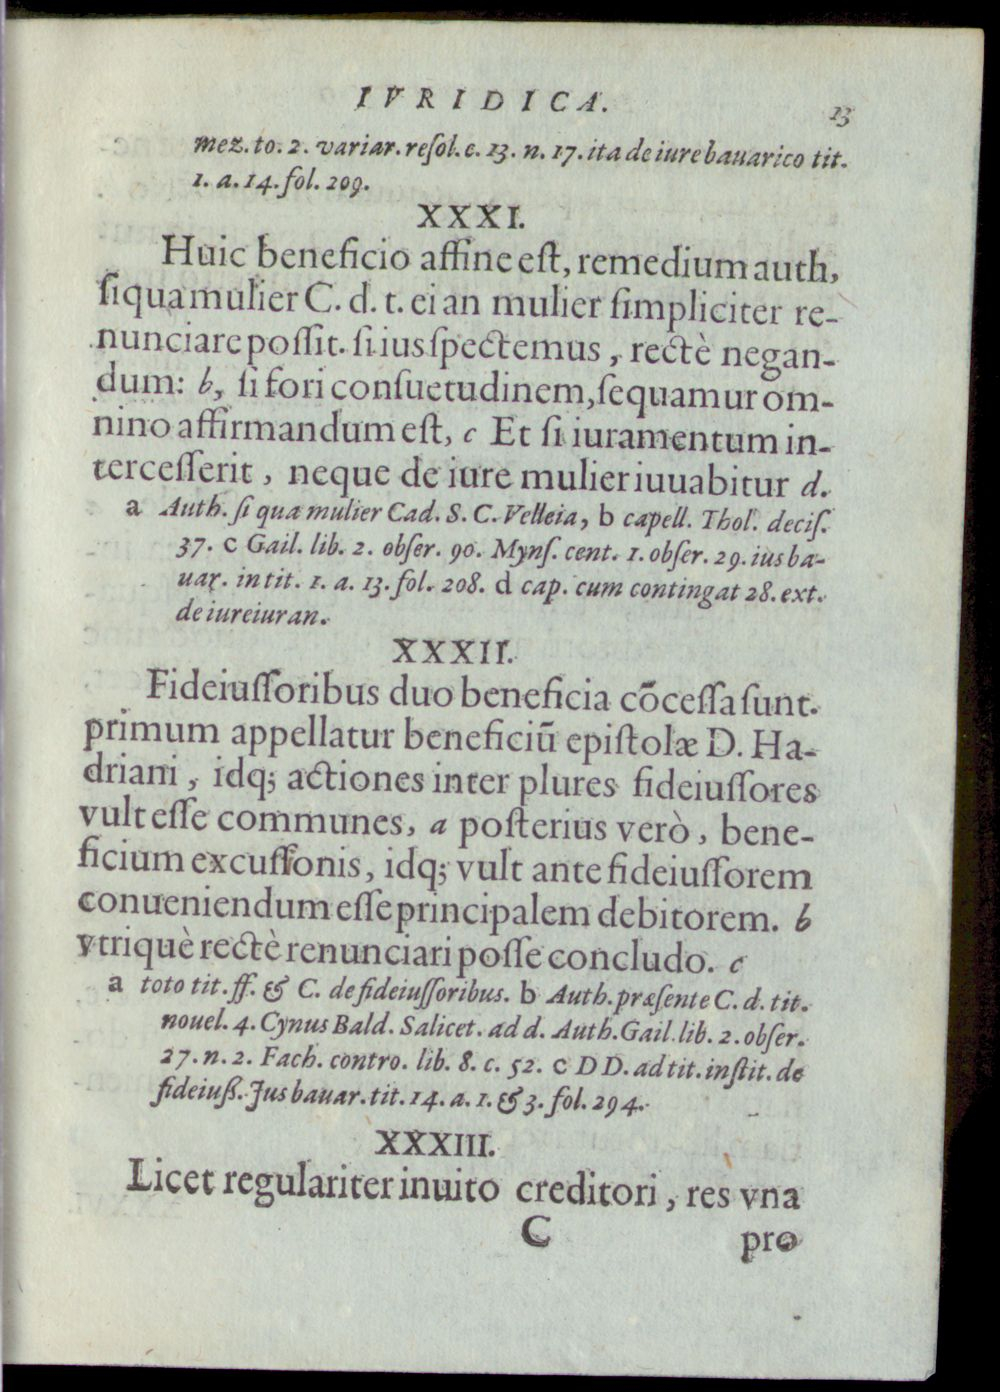 IVRIDICA. 13
mez. to. 2. variar. reſol. c. 13. n. 17. ita de iure bauarico tit.
1. a. 14. fol. 209.
XXXI.
Huic beneficio affine eſt, remedium auth,
ſiqua mulier C. d. t. ei an mulier ſimpliciter re-
nunciare poſſit. ſi ius ſpectemus, rectè negan-
dum: b, ſi fori conſuetudinem, ſequamur om-
nino affirmandum eſt, c Et ſi iuramentum in-
terceſſerit, neque de iure mulier iuuabitur d.
a Auth. ſi qua mulier Cad. S. C. Velleia, b capell. Thol. deciſ.
37. c Gail. lib. 2. obſer. 90. Mynſ. cent. 1. obſer. 29. ius ba-
uar. in tit. 1. a. 13. fol. 208. d cap. cum contingat 28. ext.
de iureiuran.
XXXII.
Fideiuſſoribus duo beneficia cõceſſa ſunt.
primum appellatur beneficiũ epiſtolæ D. Ha-
driani, idq; actiones inter plures fideiuſſores
vult eſſe communes, a poſterius verò, bene-
ficium excuſſionis, idq; vult ante fideiuſſorem
conueniendum eſſe principalem debitorem. b
vtriquè rectè renunciari poſſe concludo. c
a toto tit. ff. & C. de fideiuſſoribus. b Auth. præſente C. d. tit.
nouel. 4. Cynus Bald. Salicet. ad d. Auth. Gail. lib. 2. obſer.
27. n. 2. Fach. contro. lib. 8. c. 52. c D D. ad tit. inſtit. de
fideiuß. Jus bauar. tit. 14. a. 1. & 3. fol. 294.
XXXIII.
Licet regulariter inuito creditori, res vna
C pro